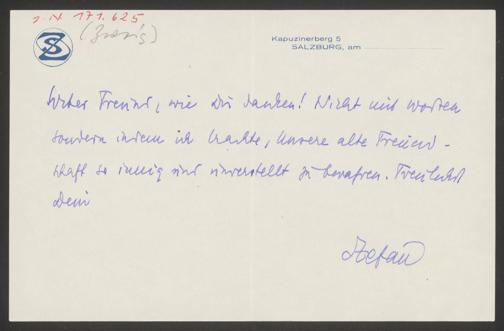 I.N 171.625
(Zweig)
SZ
Kapuzinerberg 5
SALZBURG, am
Lieber Freund, wie Dir danken! Nicht mit Worten
sondern indem ich trachte, unsere alte Freund-
schaft so innig und unverstellt zu bewahren. Treulichst
Dein
Stefan